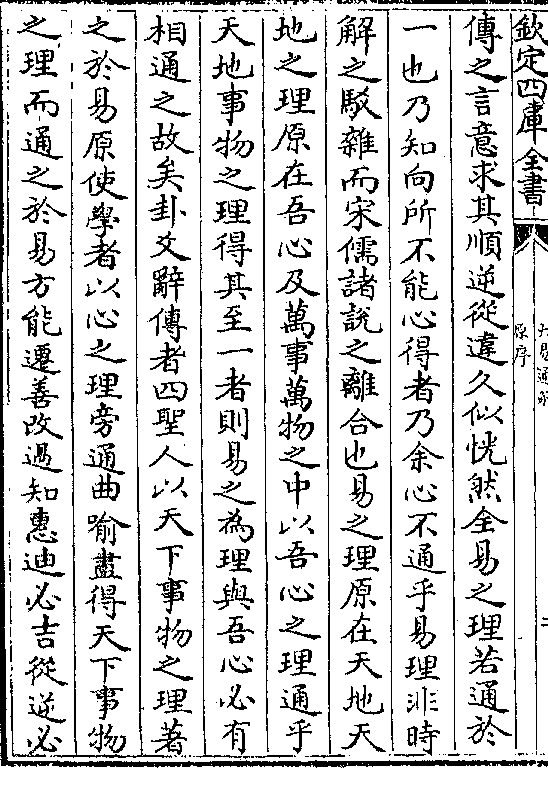 欽定四庫全書
大易通解
原序
二
傳之言意求其順逆從違久似恍然全易之理若通於
一也乃知向所不能心得者乃余心不通乎易理非時
解之駁雜而宋儒諸說之離合也易之理原在天地天
地之理原在吾心及萬事萬物之中以吾心之理通乎
天地事物之理得其至一者則易之為理與吾心必有
相通之故矣卦爻辭傳者四聖人以天下事物之理著
之於易原使學者以心之理旁通曲喻盡得天下事物
之理而通之於易方能遷善改過知惠迪必吉從逆必